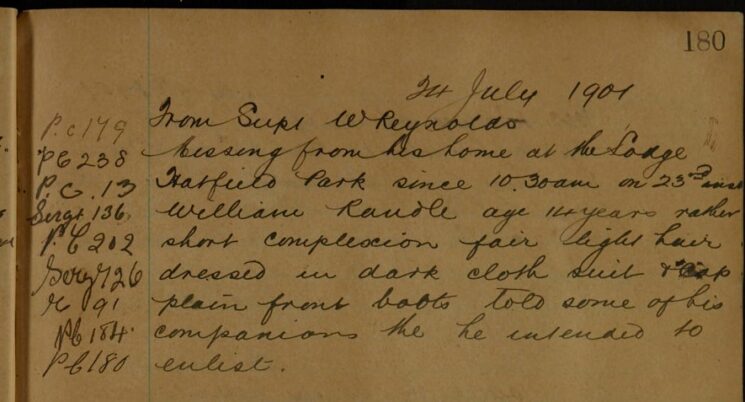 180
24 July 1901
P.C 179 From Supt W Reynolds
PC 238 Missing from his home at the Lodge
P.C. 13 Hatfield Park since 10.30am on 23rd inst
Sergt 136 William Randle age 14 years rather
P.C 202 short complexion fair light hair
Sergt 126 dressed in dark cloth suit & cap
91 plain front boots told some of his
PC 184 companions the he intended to
PC 180 enlist.